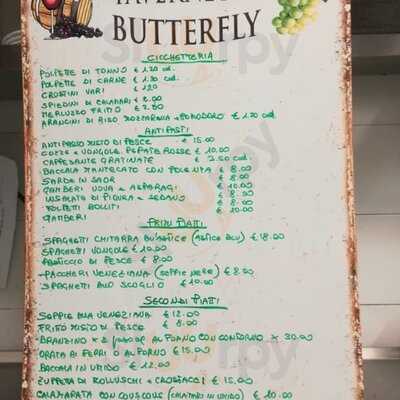 BUTTERFLY
CICCHETTERIA
POLPETTE DI TONNO € 1.20 cad.
POLPETTE DI CARNE € 1.30 cad.
CROSTINI VARI € 1.20
SPIEDINI DI CALAMARI € 2.00
MERLUZZO FRITTO € 2.50
ARANCINI DI RISO MOZZARELLA + POMODORO € 1.70 cad.
ANTIPASTI
ANTIPASTO MISTO DI PESCE € 15.00
COZZE e VONGOLE PEPATE ROSSE € 10.00
CAPPESANTE GRATINATE € 3.50 cad.
BACCALA MANTECATO CON POLENTA € 8.00
SARDE IN SAOR € 8.00
GAMBERI UOVA e ASPARAGI € 10.00
INSALATA DI PIOVRA e SEDANO € 8.50
FOLPETTI BOLLITI € 8.00
GAMBERI € 10.00
PRIMI PIATTI
SPAGHETTI CHITARRA BU'ASTICE (ASTICE BLU) € 18.00
SPAGHETTI VONGOLE € 10.00
PASTICCIO DI PESCE € 8.00
PACCHERI VENEZIANA (SEPPIE NERE) € 8.50
SPAGHETTI ALLO SCOGLIO € 10.00
SECONDI PIATTI
SEPPIE ALLA VENEZIANA € 12.00
FRITTO MISTO DI PESCE € 8.00
BRANZINO x 2 persone AL FORNO CON CONTORNO x 30.00
ORATA AI FERRI O AL FORNO € 15.00
BACCALA IN UMIDO € 12.00
ZUPPETTA DI MOLLUSCHI e CROSTACEI € 15.00
CALAMARATA CON COUSCOUS (CALAMARO IN UMIDO) € 10.00